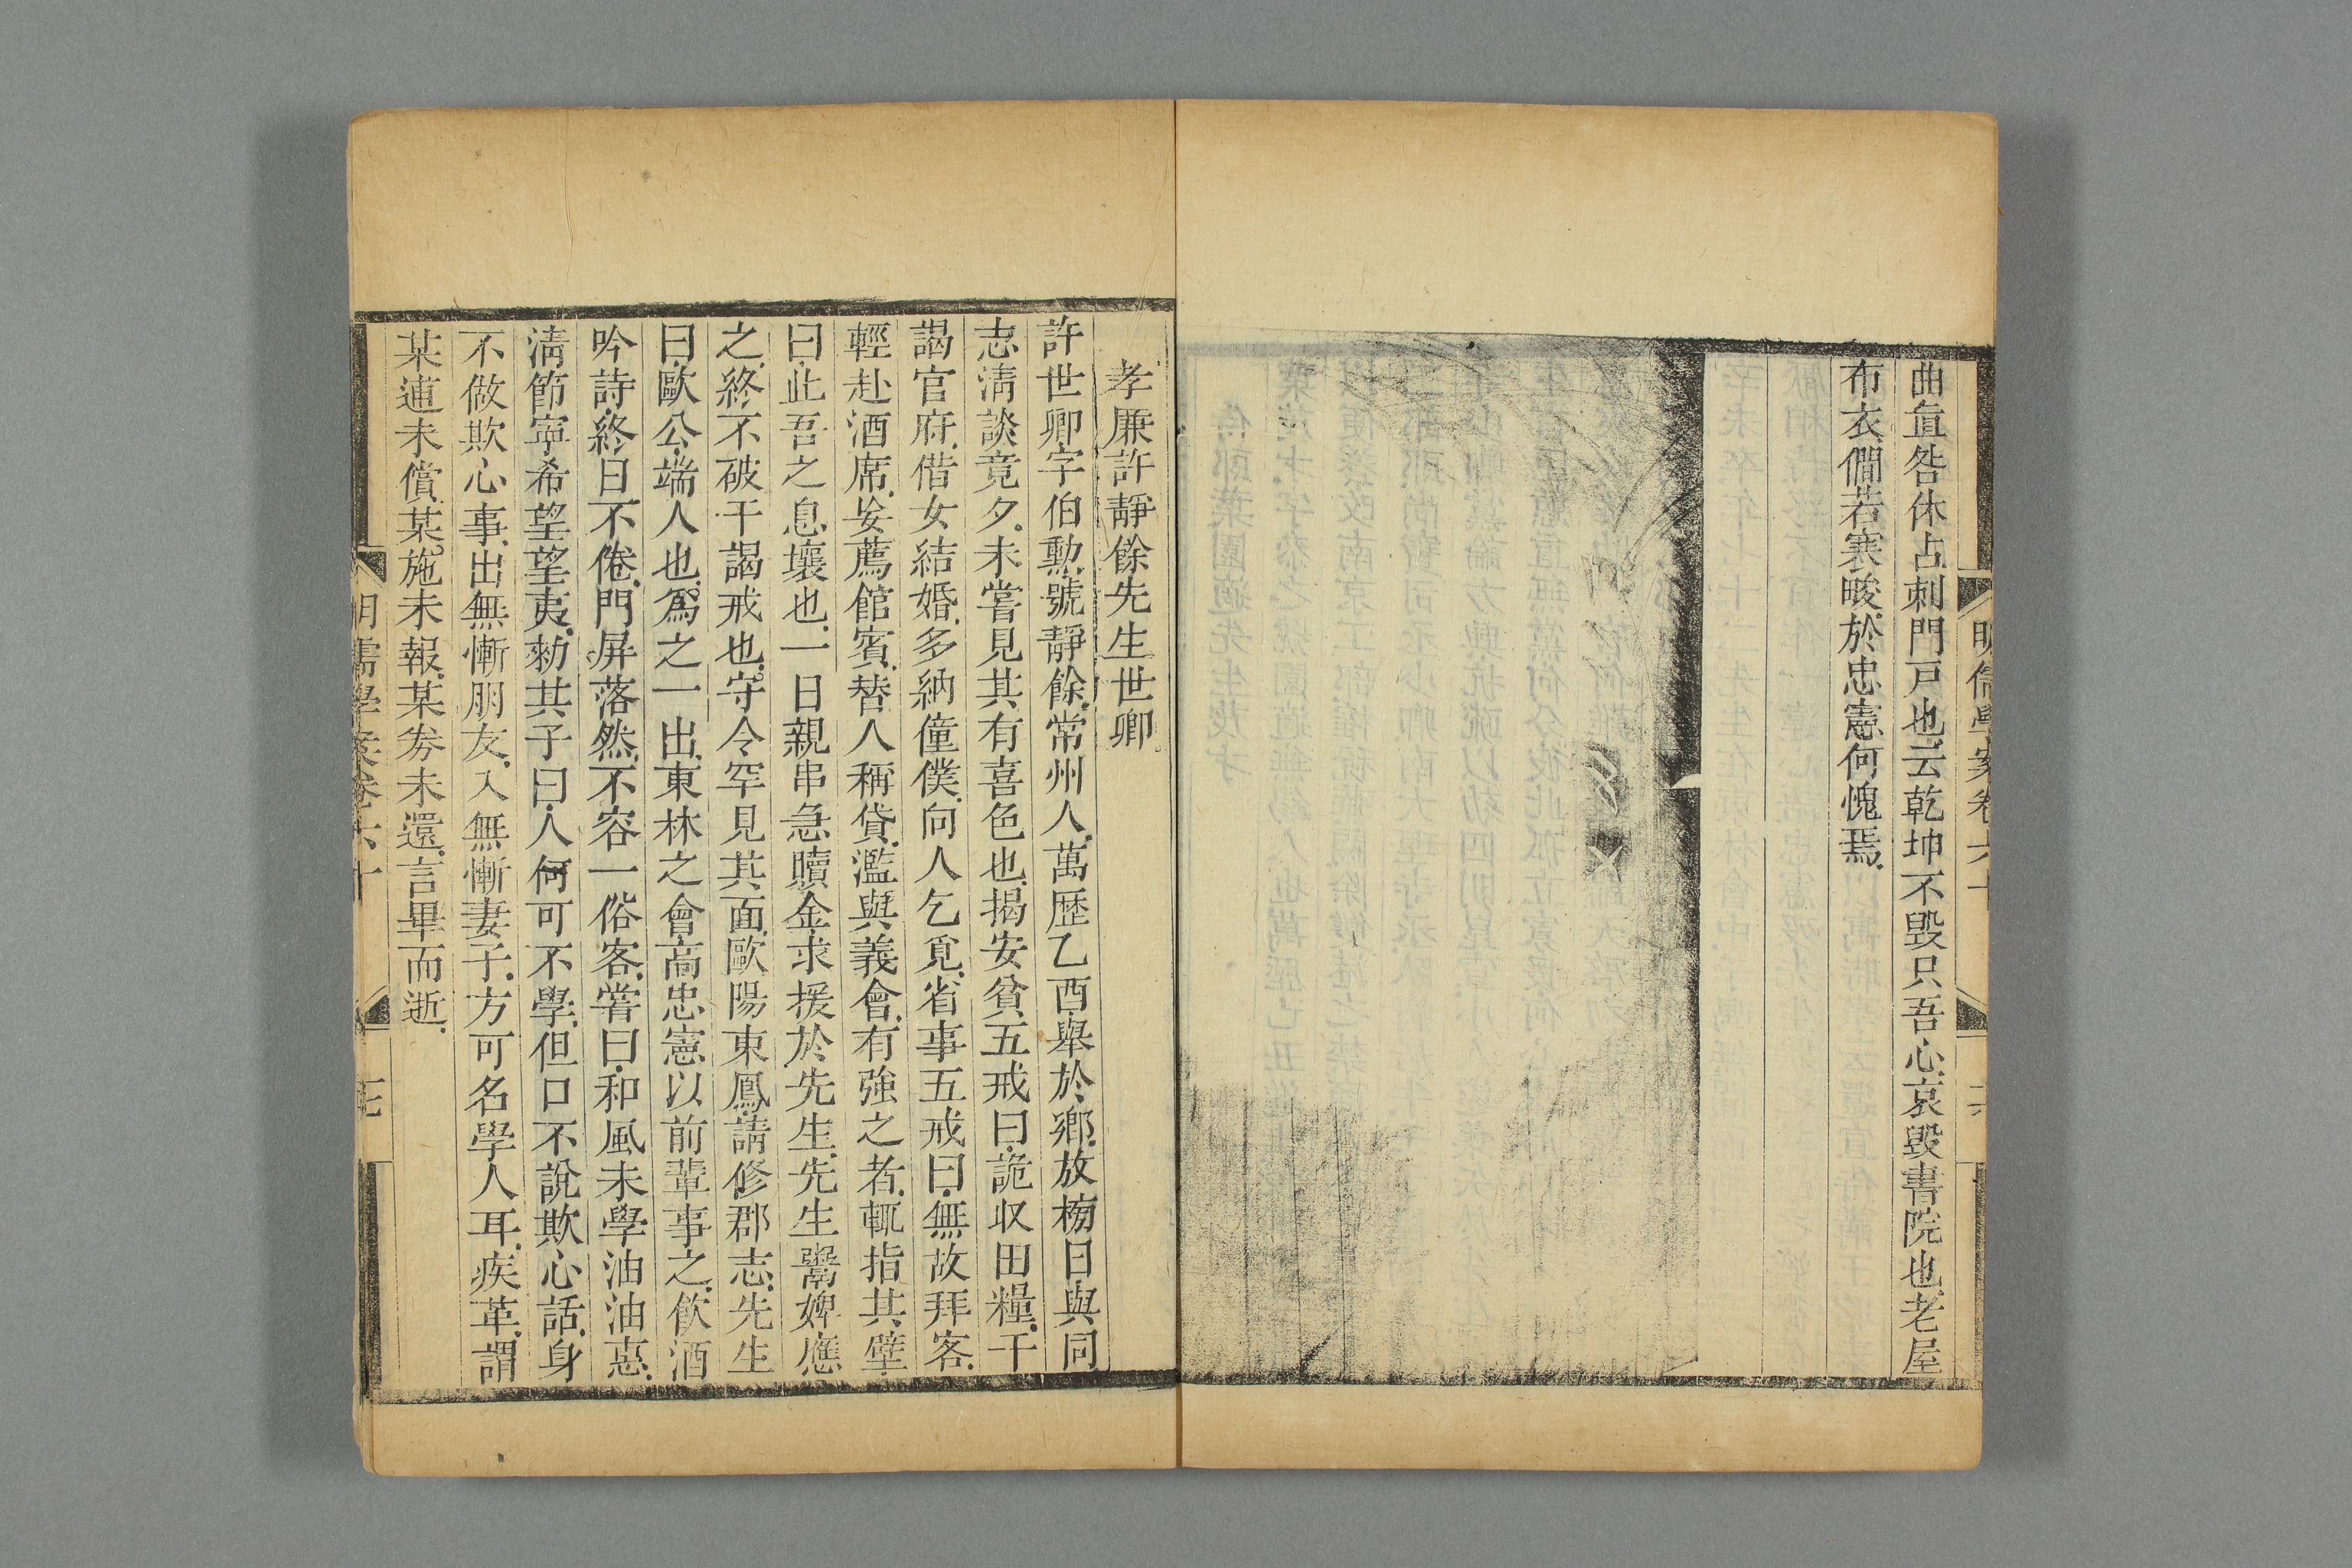 明儒學案卷六十
曲直咎休占刺門戸也云乾坤不毀只吾心哀毀書院也老屋
布衣僩若寒畯於忠憲何愧焉
孝廉許靜餘先生世卿
許世卿字伯勳號靜餘常州人萬歴乙酉舉於鄉放榜日與同
志淸談竟夕未嘗見其有喜色也揭安貧五戒曰詭収田糧干
謁官府借女結婚多納僮僕向人乞覓省事五戒曰無故拜客
輕赴酒席妄薦館賓替人稱貸濫與義會有強之者輒指其壁
曰此吾之息壤也一日親串急贖金求援於先生先生鬻婢應
之終不破干謁戒也守令罕見其面歐陽東鳳請修郡志先生
曰歐公端人也爲之一出東林之會高忠憲以前輩事之飲酒
吟詩終日不倦門屏落然不容一俗客嘗曰和風未學油油惠
淸節寧希望望夷勑其子曰人何可不學但口不說欺心話身
不做欺心事出無慚朋友入無慚妻子方可名學人耳疾革謂
某逋未償某施未報某劵未還言畢而逝
明儒學案卷六十